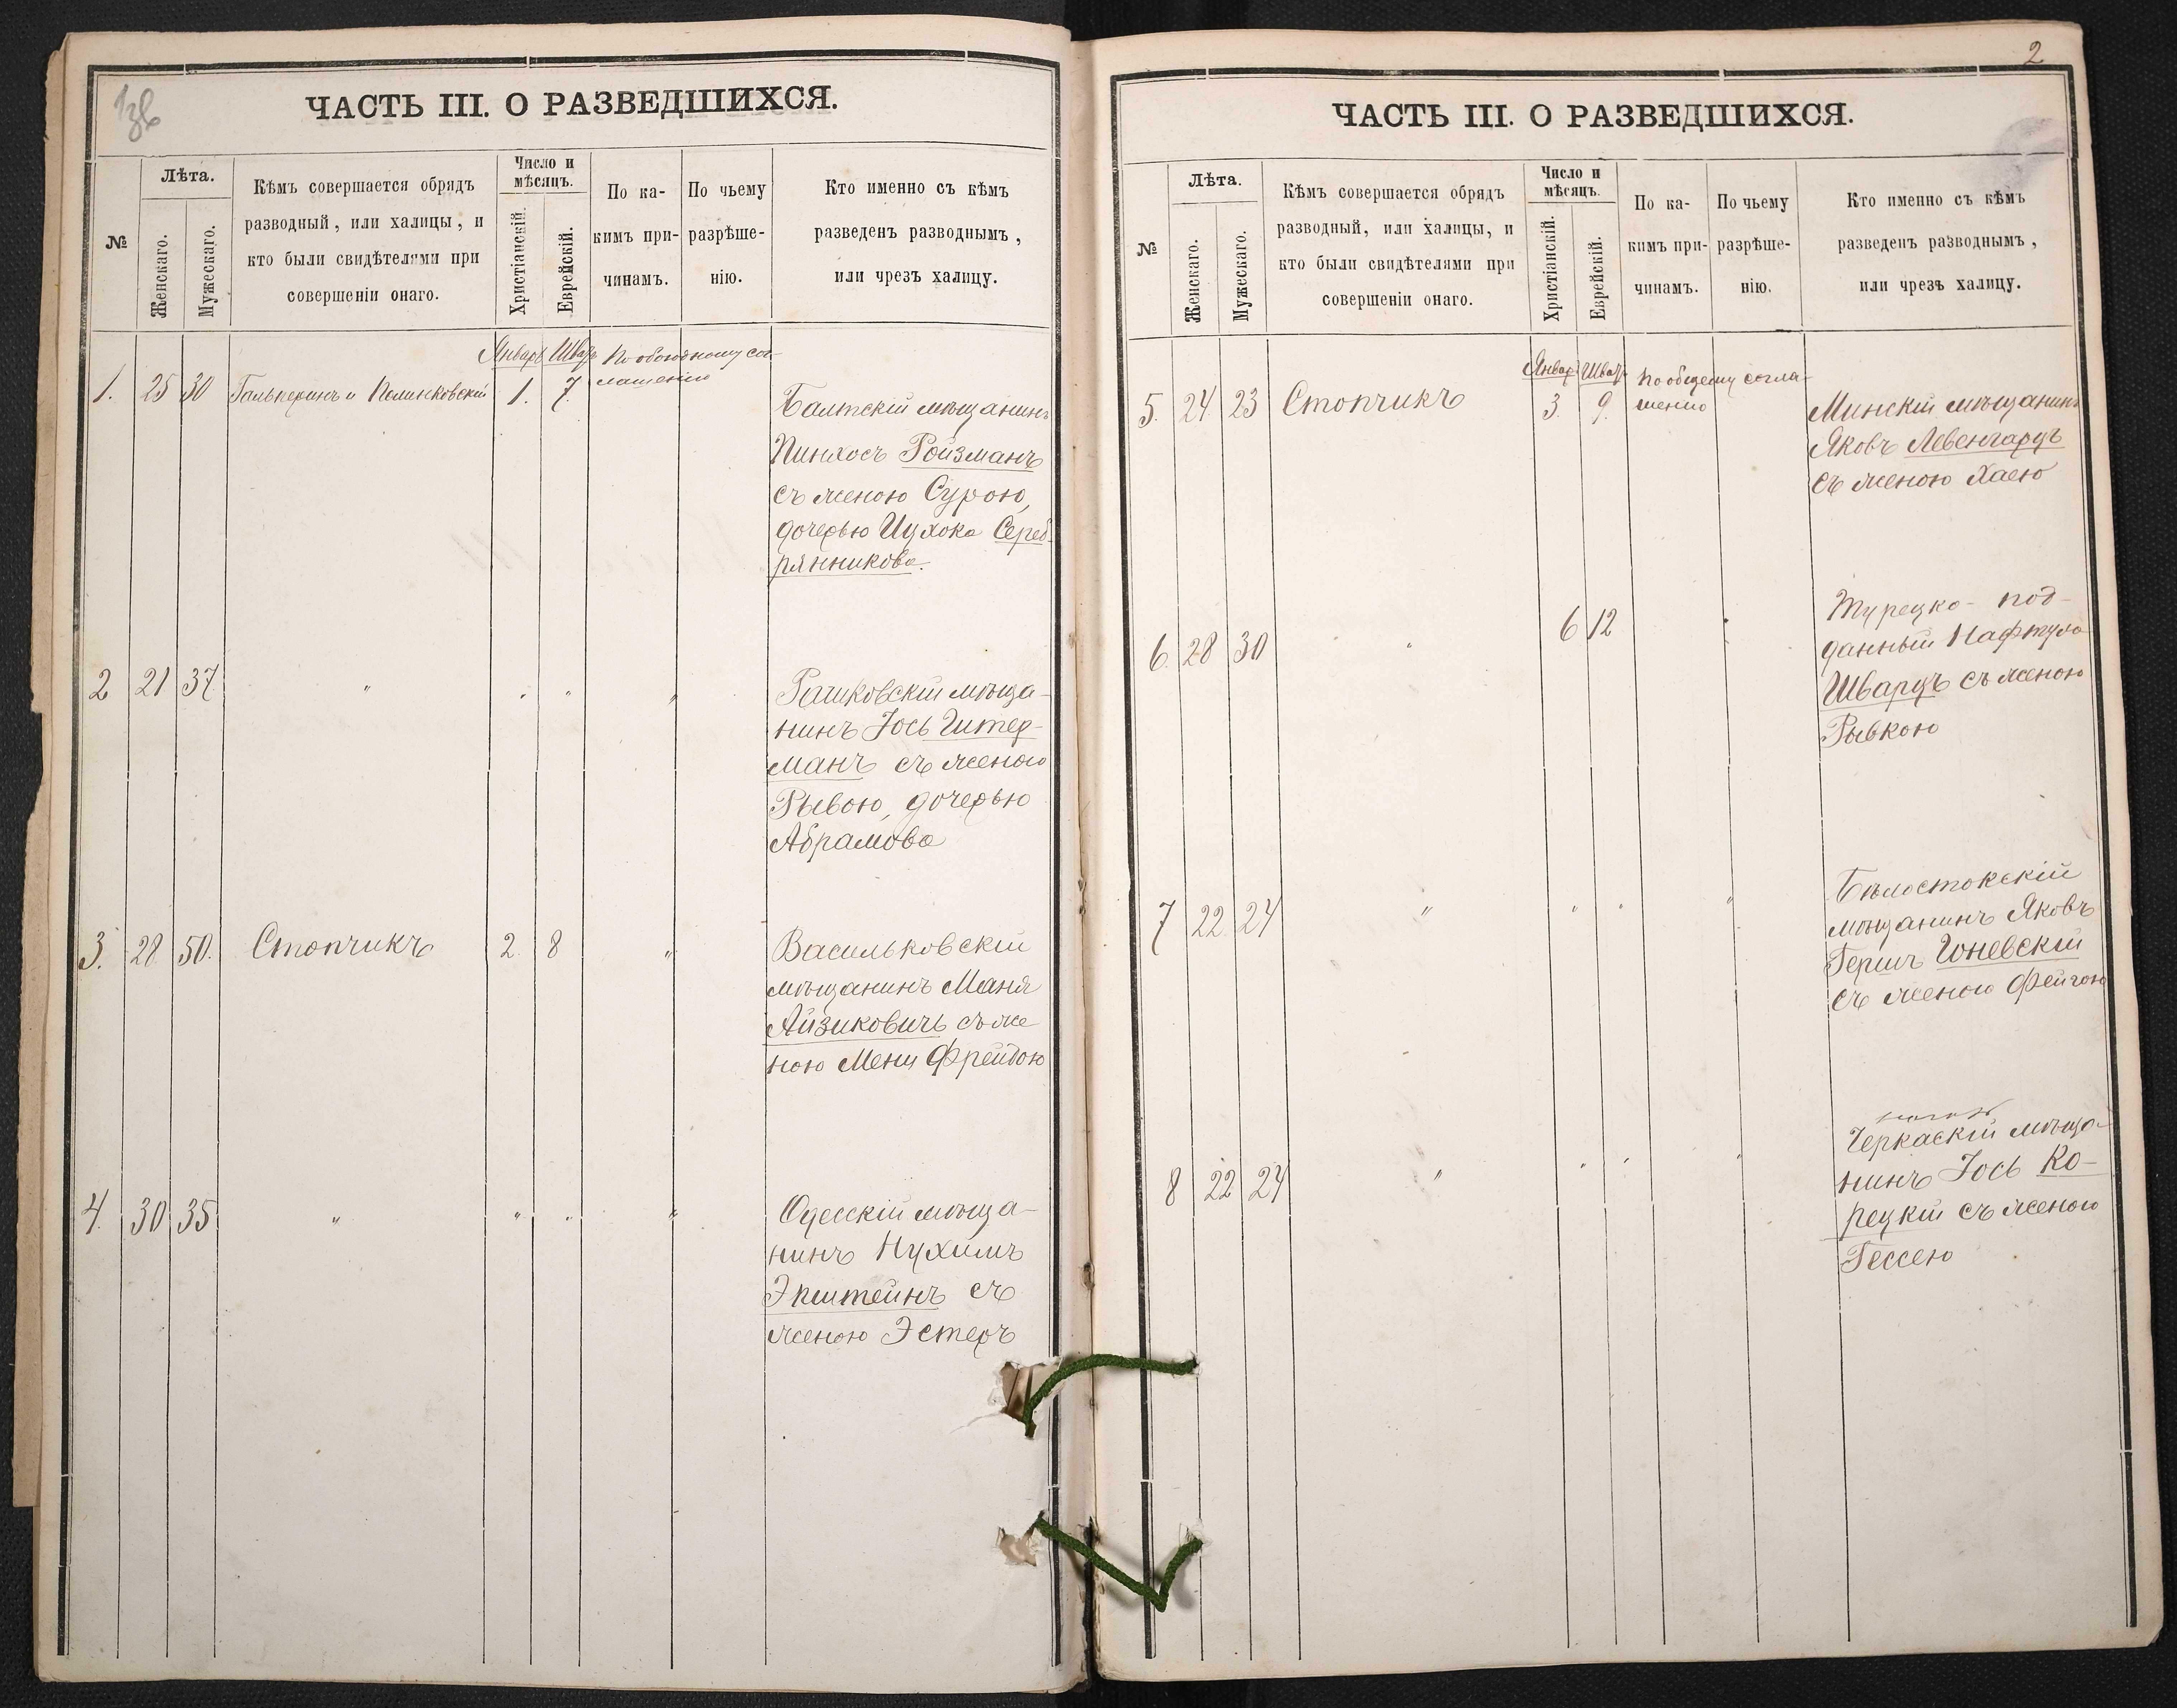 1зв
ЧАСТЬ III. О РАЗВЕДШИХСЯ.
№
Лѣта.
Женскаго.
Мужескаго.
Кѣмъ совершается обрядъ
разводный, или халицы, и
кто были свидѣтелями при
совершеніи онаго.
Число и
мѣсяцъ.
Христіанскій.
Еврейскій.
По ка-
кимъ при-
чинамъ.
По чьему
разрѣше-
нію.
Кто именно съ кѣмъ
разведенъ разводнымъ,
или чрезъ халицу.
Январь Шватъ По обоюдному сог-
лашенію
1. 25 30 Гальперинъ и 1. 7.
Балтскій мѣщанинъ
Пинхосъ Ройзманъ
съ женою Сурою,
дочерью Ицхока Сереб-
рянникова.
2 21 37 " " " "
Рашковскій мѣща-
нинъ Іось Гитер-
манъ съ женою
Рывою, дочерью
Абрамова
3. 28 50. Стопчикъ 2. 8 "
Васильковскій
мѣщанинъ Маня
Айзиковичъ съ же
ною Мени Фрейдою
4. 30 35 " " " "
Одесскій мѣща-
нинъ Нухимъ
Эпштейнъ съ
женою Эстеръ
2
ЧАСТЬ III. О РАЗВЕДШИХСЯ.
№
Лѣта.
Женскаго.
Мужескаго.
Кѣмъ совершается обрядъ
разводный, или халицы, и
кто были свидѣтелями при
совершеніи онаго.
Число и
мѣсяцъ.
Христіанскій.
Еврейскій.
По ка-
кимъ при-
чинамъ.
По чьему
разрѣше-
нію.
Кто именно съ кѣмъ
разведенъ разводнымъ,
или чрезъ халицу.
Январь Шватъ По общему согла-
шенію
5. 24 23 Стопчикъ 3. 9.
Минскій мѣщанинъ
Яковъ Левенгардъ
съ женою Хаею
6. 28 30 " 6 12 "
Турецко-под-
данный Нафтула
Шварцъ съ женою
Рывкою
7 22 24 " " " "
Бѣлостокскій
мѣщанинъ Яковъ
Гершъ Юневскій
съ женою Фейгою
8 22 24 " " " "
Черкаскій мѣща-
нинъ Іось Ко-
рецкій съ женою
Гессею